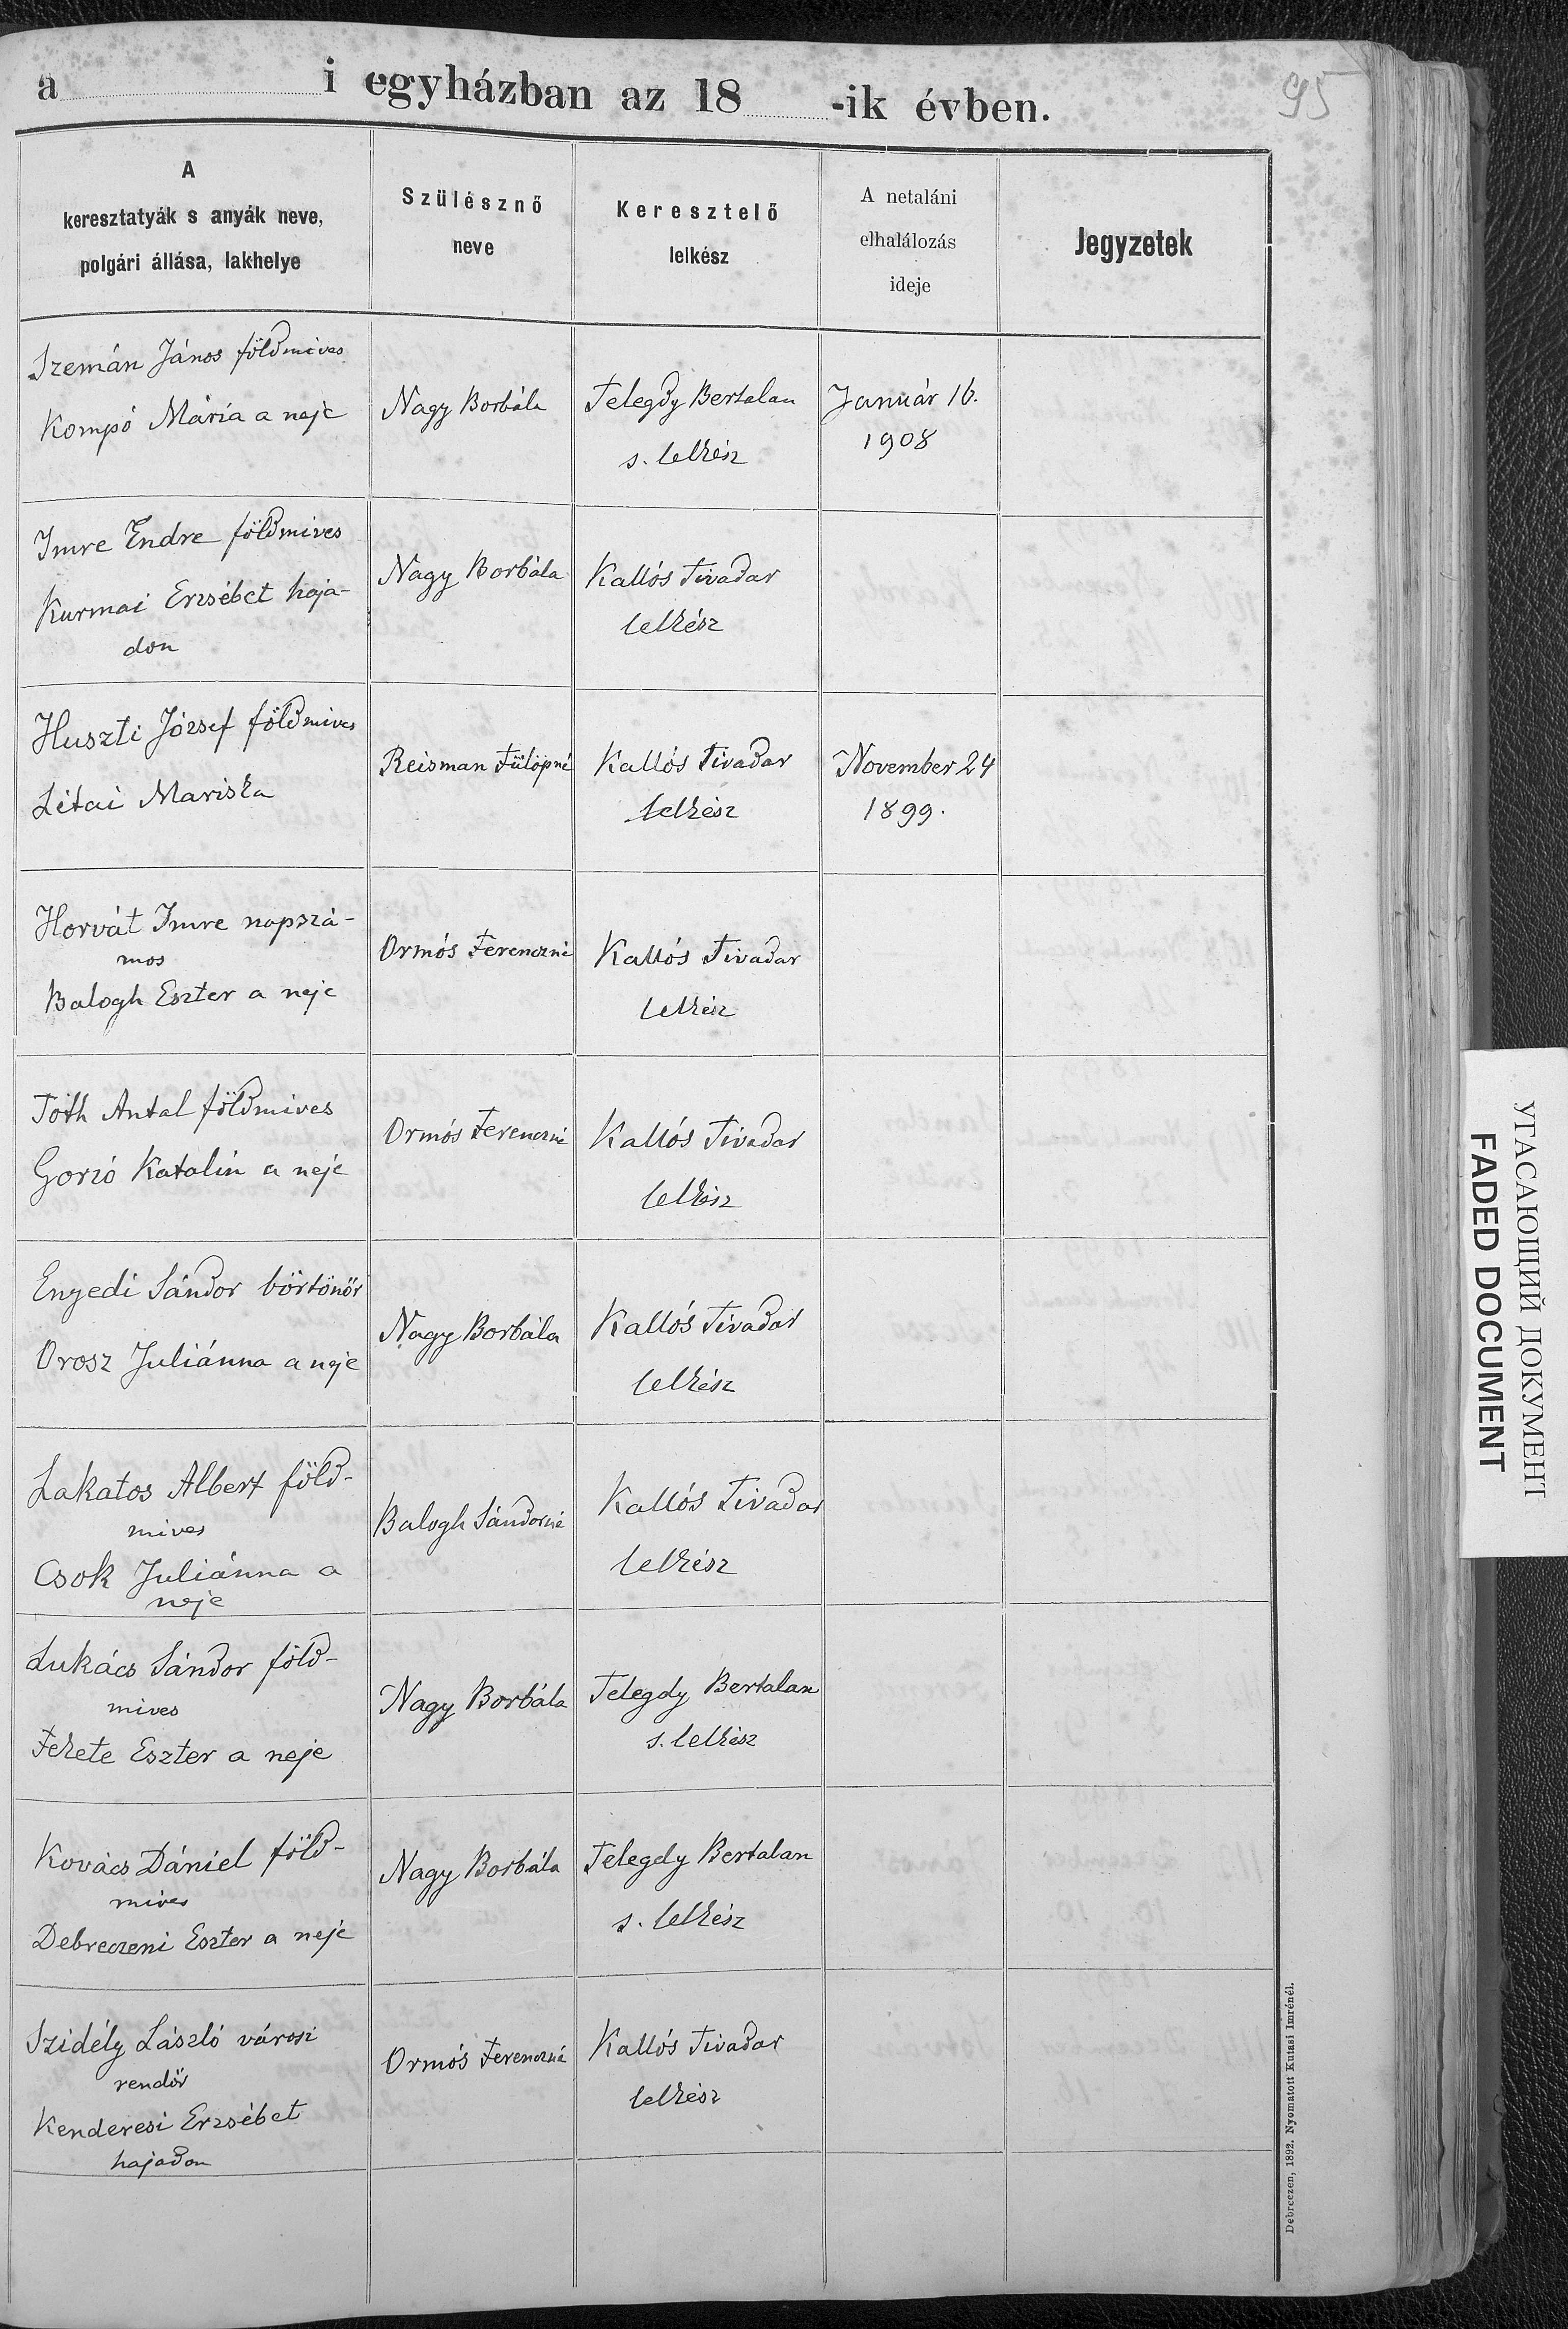 a i egyházban az 18 -ik évben.
95
A
keresztatyák s anyák neve,
polgári állása, lakhelye
Szülésznő
neve
Keresztelő
lelkész
A netaláni
elhalálozás
ideje
Jegyzetek
Szemán János földmives
Kompó Mária a neje
Nagy Borbála
Telegdy Bertalan
s. lelkész
Január 16.
1908
Imre Endre földmives
Kurmai Erzsébet haja-
don
Nagy Borbála
Kallós Tivadar
lelkész
Huszti József földmives
Litai Mariska
Reisman Fülöpné
Kallós Tivadar
lelkész
November 24
1899.
Horvát Imre napszá-
mos
Balogh Eszter a neje
Ormós Ferenczné
Kallós Tivadar
lelkész
Tóth Antal földmives
Gorzó Katalin a neje
Ormós Ferenczné
Kallós Tivadar
lelkész
Enyedi Sándor börtönőr
Orosz Juliánna a neje
Nagy Borbála
Kallós Tivadar
lelkész
Lakatos Albert föld-
mives
Csok Juliánna a
neje
Balogh Sándorné
Kallós Tivadar
lelkész
Lukács Sándor föld-
mives
Fekete Eszter a neje
Nagy Borbála
Telegdy Bertalan
s. lelkész
Kovács Dániel föld-
mives
Debreczeni Eszter a neje
Nagy Borbála
Telegdy Bertalan
s. lelkész
Szidély László városi
rendőr
Kenderesi Erzsébet
hajadon
Ormós Ferenczné
Kallós Tivadar
lelkész
Debreczen, 1892. Nyomatott Kutasi Imrénél.
УГАСАЮЩИЙ ДОКУМЕНТ
FADED DOCUMENT